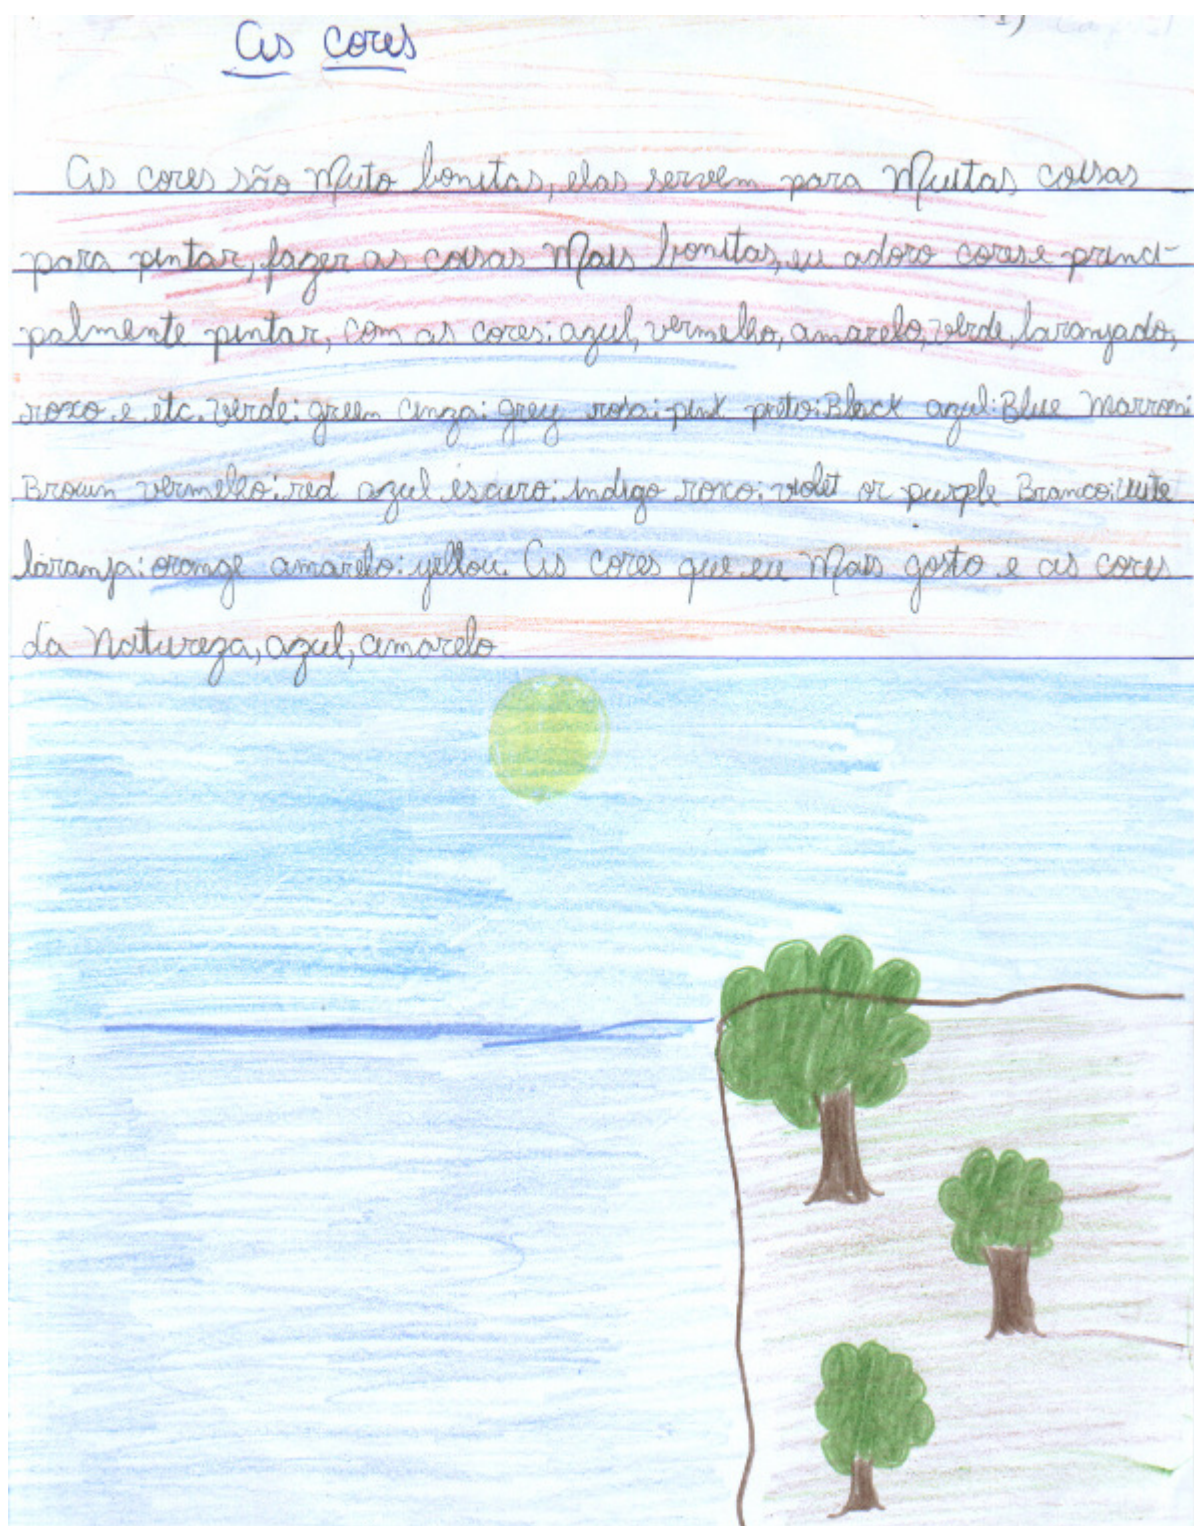 As cores
As cores são Muto bonitas, elas servem para Muitas coisas
para pintar, fazer as coisas Mais bonitas, eu adoro cores e princi-
palmente pintar, com as cores: azul, vermelho, amarelo, verde, laranjado,
roxo e etc. verde: green cinza: grey rosa: pink preto: Black azul: Blue Marrom:
Brown vermelho: red azul escuro: indigo roxo: violet or purple Branco: wite
laranja: orange amarelo: yellou. As cores que eu Mais gosto e as cores
da Natureza, azul, amarelo